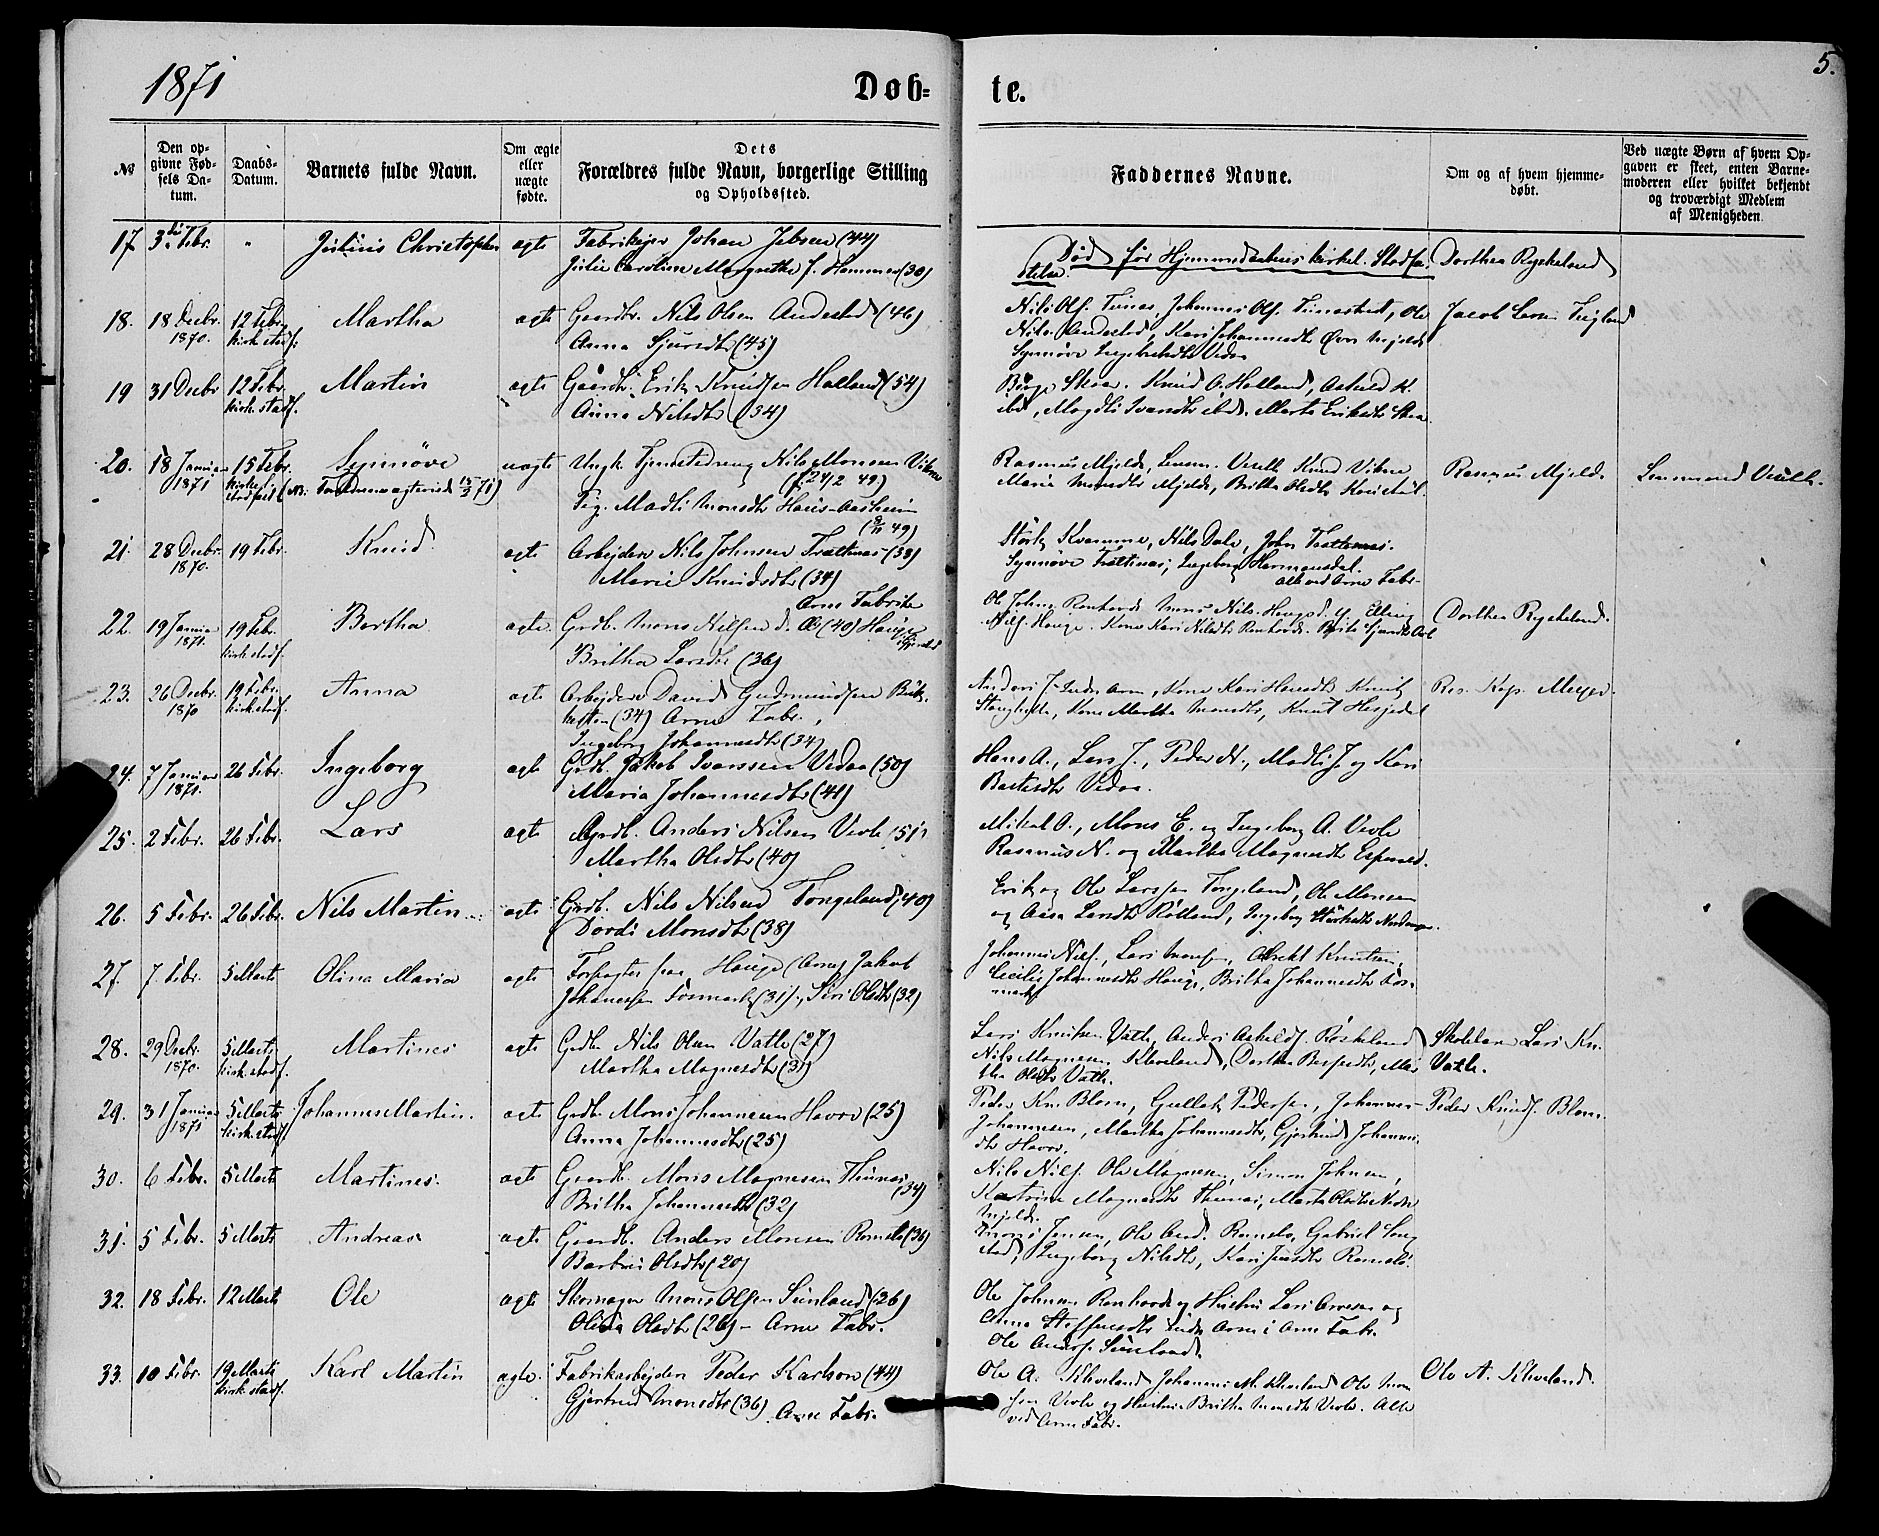 1871
Døb-
te.
5.
№
Den op-
givne Fød-
sels Da-
tum.
Daabs-
Datum.
Barnets fulde Navn.
Om ægte
eller
uægte
fødte.
Dets
Forældres fulde Navn, borgerlige Stilling
og Opholdssted.
Faddernes Navne.
Om og af hvem hjemme-
døbt.
Ved uægte Børn af hvem Op-
gaven er skeet, enten Barne-
moderen eller hvilket bekjendt
og troværdigt Medlem
af Menigheden.
17 3die Febr. " Julius Christopher ægte Fabrikejer Johan Jebsen (44)
Julie Caroline Margrethe f. Hammer (30)
Død før Hjemmedaabens kirkel. Stadfæ-
stelse.
Dorthea Ryskeland
18. 18 Decbr. 1870. 12 Febr. kirk. stadf. Martha ægte Gaardbr. Nils Olsen Andestad (46)
Anna Sjursdtr (45)
Nils Olss. Tunes, Johannes Olss. Tunestvet, Ole
Nils. Andestad, Kari Johannesdtr Øvre Mjelde
Synnøve Vedaa
Jacob
19 31 Decbr 12 Febr. kirk. stadf. Martin ægte Gaardbr. Erik Knudsen Halland (54)
Anna Nilsdtr (34)
Skaar. Knud O. Halland, Askild K.
ibd, Magdli Ivarsdtr ibd. Marta Eriksdtr
20. 18 Januar 1871 15 Febr. kirkel. stadfæst Synnøve uægte Ungk. Nils Monsen Vikne
(f. 24/2 49)
Pig. Madli Monsdtr Haus-Aasheim
(8/11 49)
Rasmus Mjelde, Lensm. Knud Vikne
Maria Monsdtr Mjelde, Britha Olsdtr
Rasmus Mjelde
Lensmand
21. 28 Decbr. 1870. 19 Febr. Knud ægte Arbejder Nils Johnsen Trættenes (38)
Marie Knudsdtr (34)
Arne Fabrike
Størk Kvamme, Nils Dale, John Trættenes.
Synnøve Trættenes, Ingeborg Hermansdal.
alle ved Arne Fabr.
22. 19 Januar 1871. 19 Febr. kirk. stadf. Bertha ægte. Grdb. Mons Nilsen d. Æ (40) Hauge
Britha Larsdtr (36)
Ole Johns. Mons Nils. Haugs d. y. Elling
Nils. Hauge. Kone Kari Nilsdtr
Dorthea Ryskeland.
23. 26 Decbr. 1870 19 Febr. kirk. stadf. Anna ægte Arbejder David Gudmundsen
(34) Arne Fabr.,
Ingeborg Johannesdtr (34)
Anders J. Indre Arne, Kone Kari Hansdtr Knut
Kone Martha Monsdtr, Knut Hesjedal
Res. Kap. Meyer.
24. 7 Januar 1871. 26 Febr. Ingeborg ægte Grdb. Jakob Ivarssen Vedaa (50)
Maria Johannesdtr (41)
Hans A., Lars J., Peder N., Madli J. og Kari
Vedaa.
25. 2 Febr. 26 Febr. Lars ægte Grdb. Anders Nilsen Veole (51)
Martha Olsdtr (40)
Mikal O., Mons E. og Ingeborg A. Veole
Rasmus N. og Martha Magnesdtr Espeset.
26. 5 Febr. 26 Febr. Nils Martin ægte Grdb. Nils Nilsen Tongeland (40)
Dordi Monsdtr (38)
Erik og Ole Larssen Tongeland, Ole Monsen
og Aasa Larsdtr Rølland, Ingeborg
27. 7 Febr. 5 Marts Olina Maria ægte Forpagter paa Hauge (Arne) Jakob
Johanessen Fosmark (31), Siri Olsdtr (32)
Johannes Nils., Lars Monsen, Knutsen,
Cecilie Johannesdtr Hauge, Britha Johannesdtr Fos-
mark
28. 29 Decbr. 1870. 5 Marts kirk. stadf. Martines ægte Grdbr Nils Olsen Vatle (27)
Martha Magnesdtr (31)
Lars Knutsen Vatle, Anders Askelds. Røskeland
Nils Magnesen Kleveland, Dorthea Mar-
tha Olsdtr Vatle.
Skolelærer Lars Kn.
Vatle.
29. 31 Januar 1871 5 Marts kirk. stadf. Johannes Martin. ægte Grdb. Mons Johannesen Havre (25)
Anna Johannesdtr (25)
Peder Kn. Blom, Gullak Pedersen, Johannes
Johannesen, Martha Johannesdtr, Gjertrud Johannes-
dtr Havre.
Peder Knuds. Blom.
30. 6 Febr. 5 Marts Martines. ægte Gaardb. Mons Magnesen Thunes (34)
Britha Johannesdtr (32)
Nils Nils. Ole Magnesen, Simon Johnsen,
Katrine Magnesdtr Thunes, Marta Olsdtr
Mjelde.
31. 5 Febr. 5 Marts Andreas ægte Gaardb. Anders Monsen Romslo (36)
Barbro Olsdtr (20)
Mons Jensen, Ole And. Romslo, Gabriel Song-
stad, Ingeborg Nilsdtr, Kari Jensdtr Romslo.
32. 18 Febr. 12 Marts Ole ægte Skomager Mons Olsen Seimland (26)
Olina Olsdtr (26) - Arne Fabr.
Ole Johnsen og Hustru Arnesen og
Anna Steffensdtr Indre Arne i Arne Fabr.
Ole Anders. Seimland.
33. 10 Febr. 19 Marts kirk. stadf. Karl Martin ægte. Fabrikarbejder Peder Karlson (44)
Gjertrud Monsdtr (36) Arne Fabr.
Ole A. Kleveland Johannes M. Kleveland Ole Mon-
sen Veole og Hustru Britha Monsdtr Veole. Alle
ved Arne Fabr.
Ole A. Kleveland.